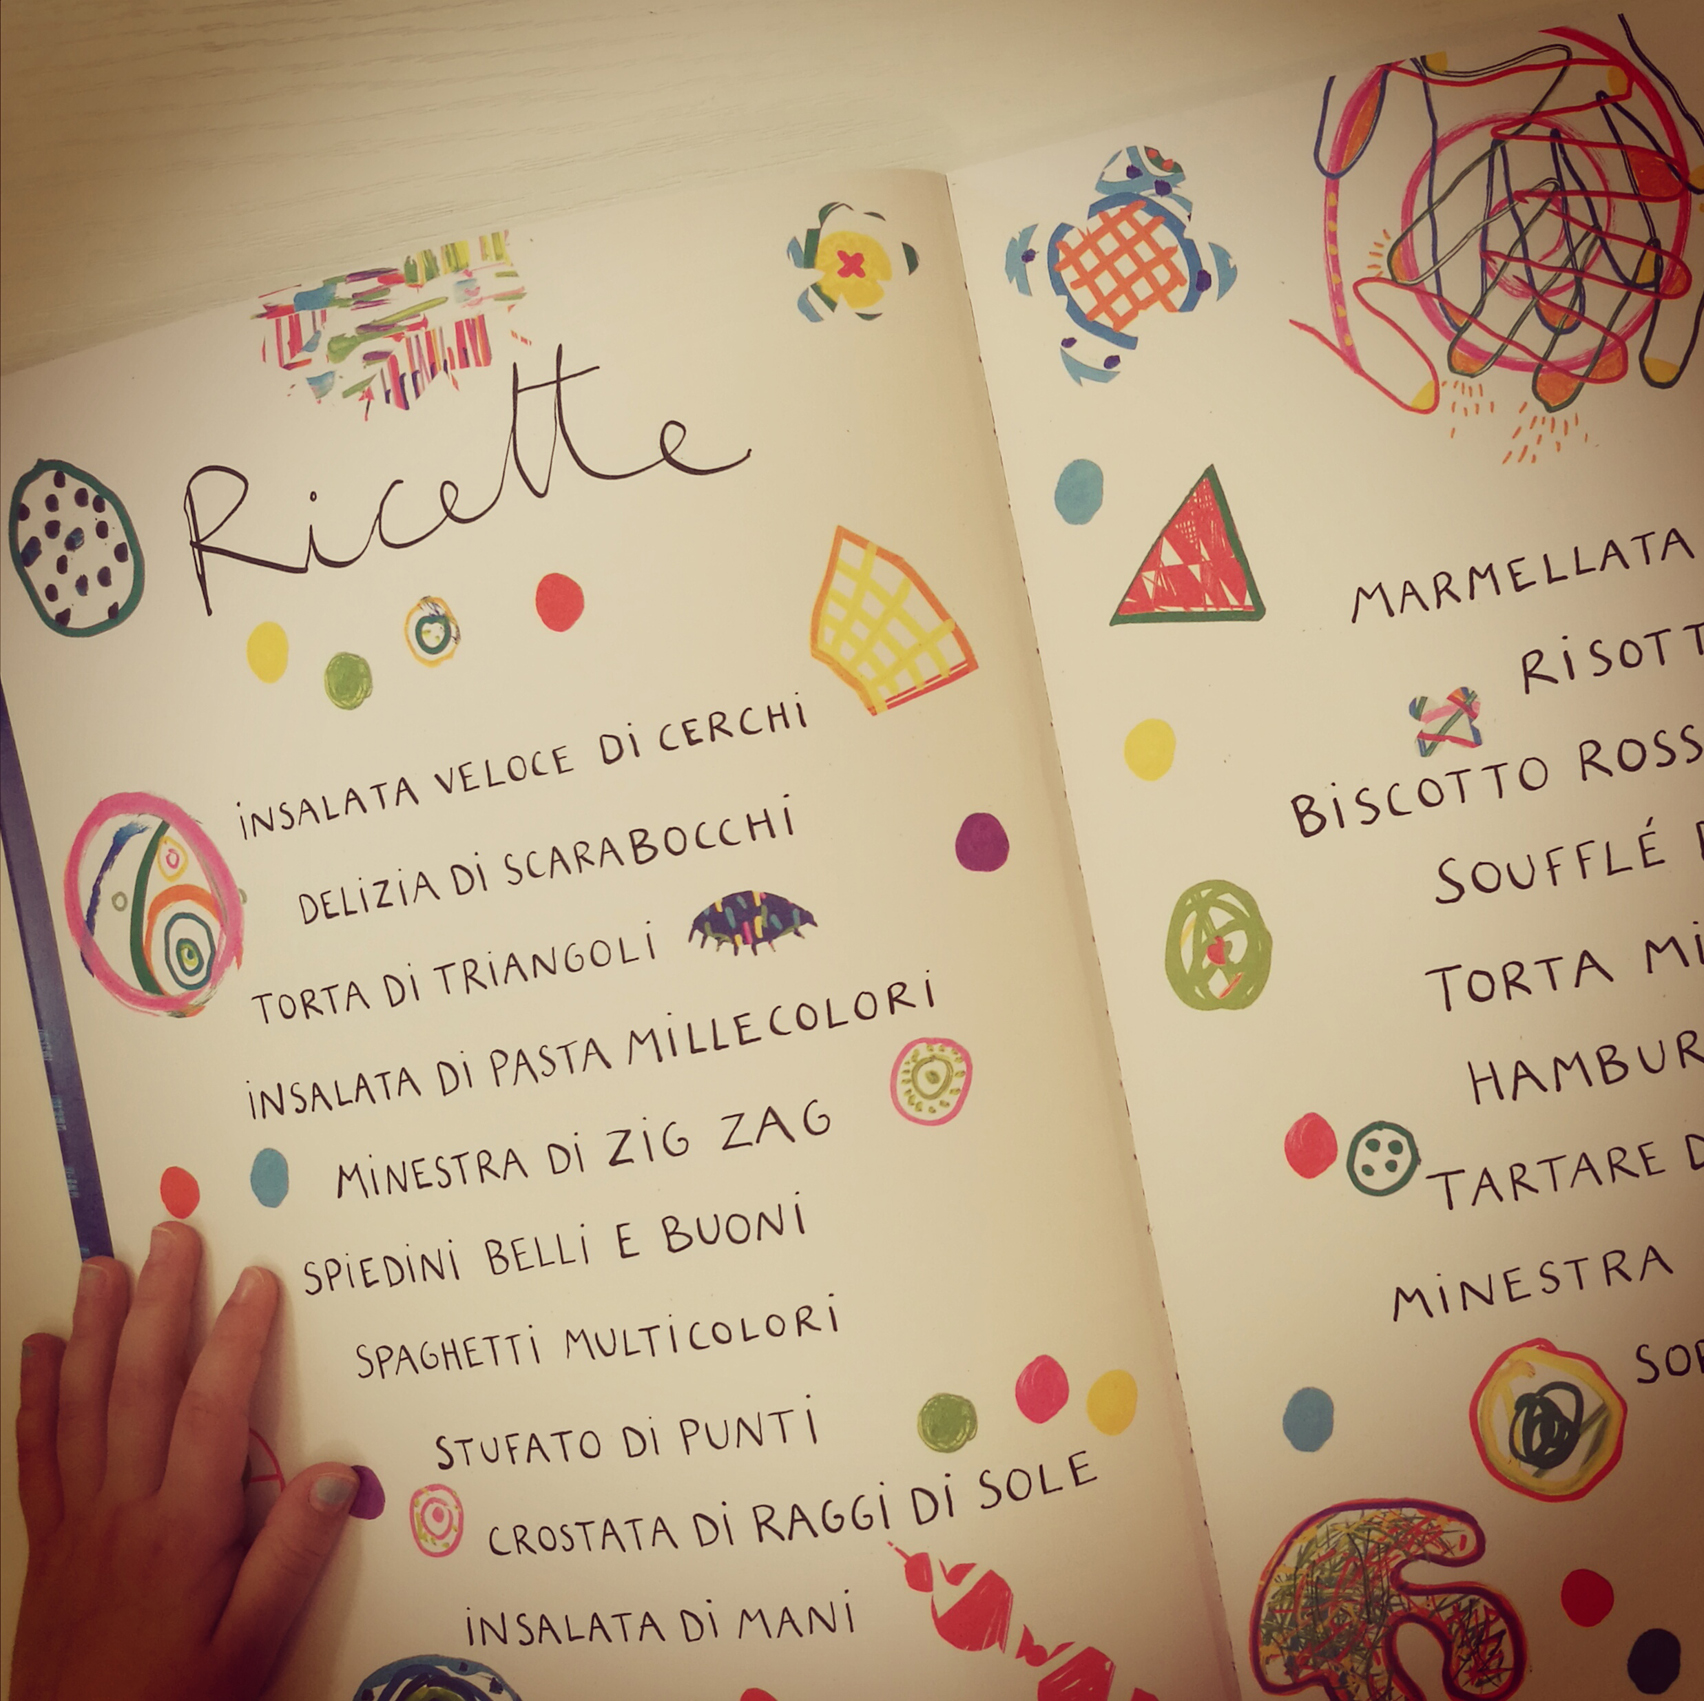 Ricette
iNSALATA VELOCE Di CERCHi
DELiZiA Di SCARABOCCHi
TORTA Di TRiANGOLi
iNSALATA Di PASTA MiLLECOLORi
MiNESTRA Di ZiG ZAG
SPiEDiNi BELLi E BUONi
SPAGHETTi MULTiCOLORi
STUFATO Di PUNTi
CROSTATA Di RAGGi Di SOLE
iNSALATA Di MANi
MARMELLATA
RiSOTT
BiSCOTTO ROSS
SOUFFLÉ
TORTA Mi
HAMBUR
TARTARE D
MiNESTRA